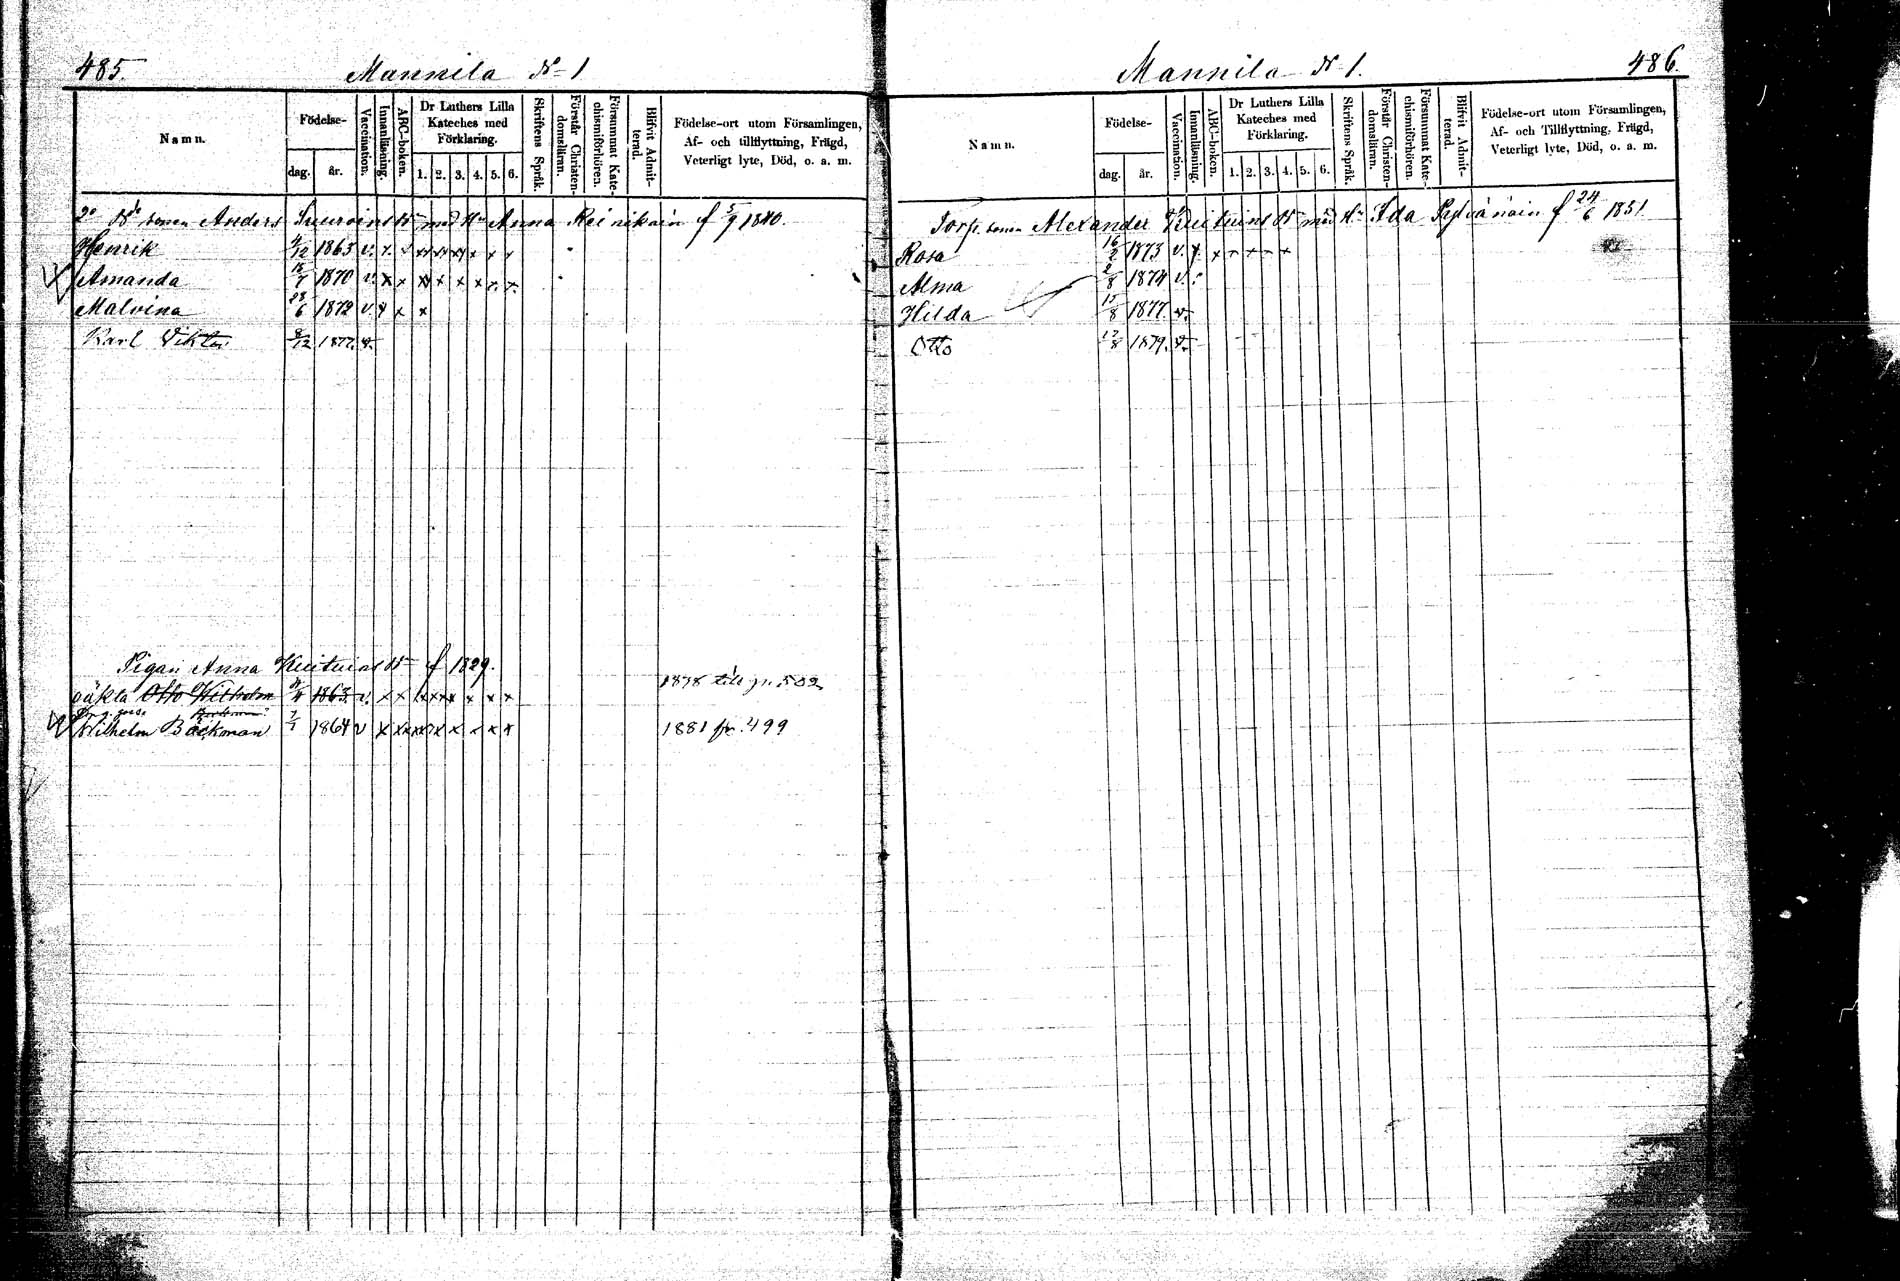 485.
Mannila No 1
Namn.
Födelse-
dag. år.
Vaccination.
Innanläsning.
ABC-boken.
Dr Luthers Lilla
Kateches med
Förklaring.
1. 2. 3. 4. 5. 6.
Skriftens Språk.
Förstår Christen-
domsläran.
Försummat Kate-
chismiförhören.
Blifvit Admit-
terad.
Födelse-ort utom Församlingen,
Af- och tillflyttning, Frägd,
Veterligt lyte, Död, o. a. m.
Anders med Hu Anna Reinikain f 5/9 1840.
Henrik 9/12 1863 v. x x x x x x x x
Amanda 18/7 1870 v. x x x x x x x x
Malvina 28/6 1872 v. x x x
Karl Viktor 8/12 1877. v.
Pigan Anna f 1829.
oäkta Otto Wilhelm 1863 v. x x x x x x x x 1878 till p. 502
Backman
Wilhelm Bäckman 7/1 1864 v x x x x x x x x 1881 fr. 499
486.
Mannila No 1.
Namn.
Födelse-
dag. år.
Vaccination.
Innanläsning.
ABC-boken.
Dr Luthers Lilla
Kateches med
Förklaring.
1. 2. 3. 4. 5. 6.
Skriftens Språk.
Förstår Christen-
domsläran.
Försummat Kate-
chismiförhören.
Blifvit Admit-
terad.
Födelse-ort utom Församlingen,
Af- och Tillflyttning, Frägd,
Veterligt lyte, Död, o. a. m.
Torp. sonen Alexander med Hu Ida Pylvänäin f 24/6 1851
Rosa 16/2 1873 v. x x x x x x
Alma 2/8 1874 v.
Hilda 15/8 1877. v.
Otto 17/8 1879. v.